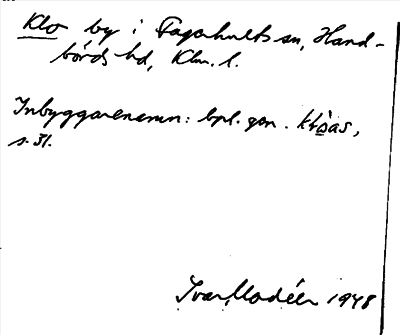 Klo by i Fagerhults sn, Hand-
börds hd, Klm. l.
Inbyggarenamn: bpl. gen. kloas,
s. 31.
Ivar Modéer 1948